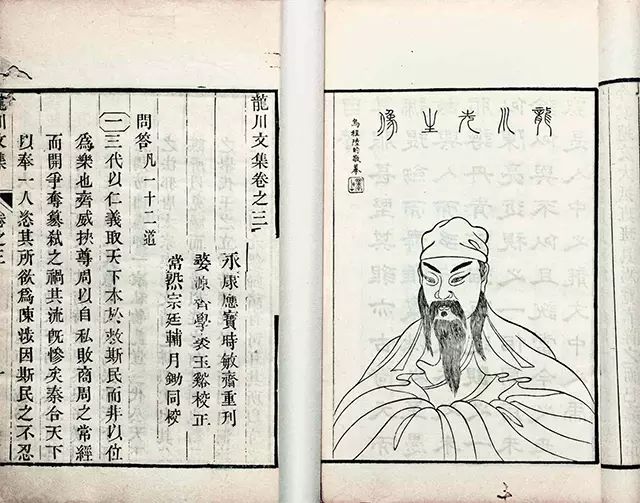 龍川先生像
烏程陸昀敬摹
龍川文集卷之三
永康應寶時敏齋重刊
婺源齊學裘玉谿校正
常熟宗廷輔月鋤同校
問答凡一十二道
一 三代以仁義取天下本於救斯民而非以位
爲樂也齊威挾尊周以自私敗商周之常經
而開爭奪簒弑之禍其流旣慘矣秦合天下
以奉一人恣其所欲爲陳涉因斯民之不忍
龍川文集 卷之三